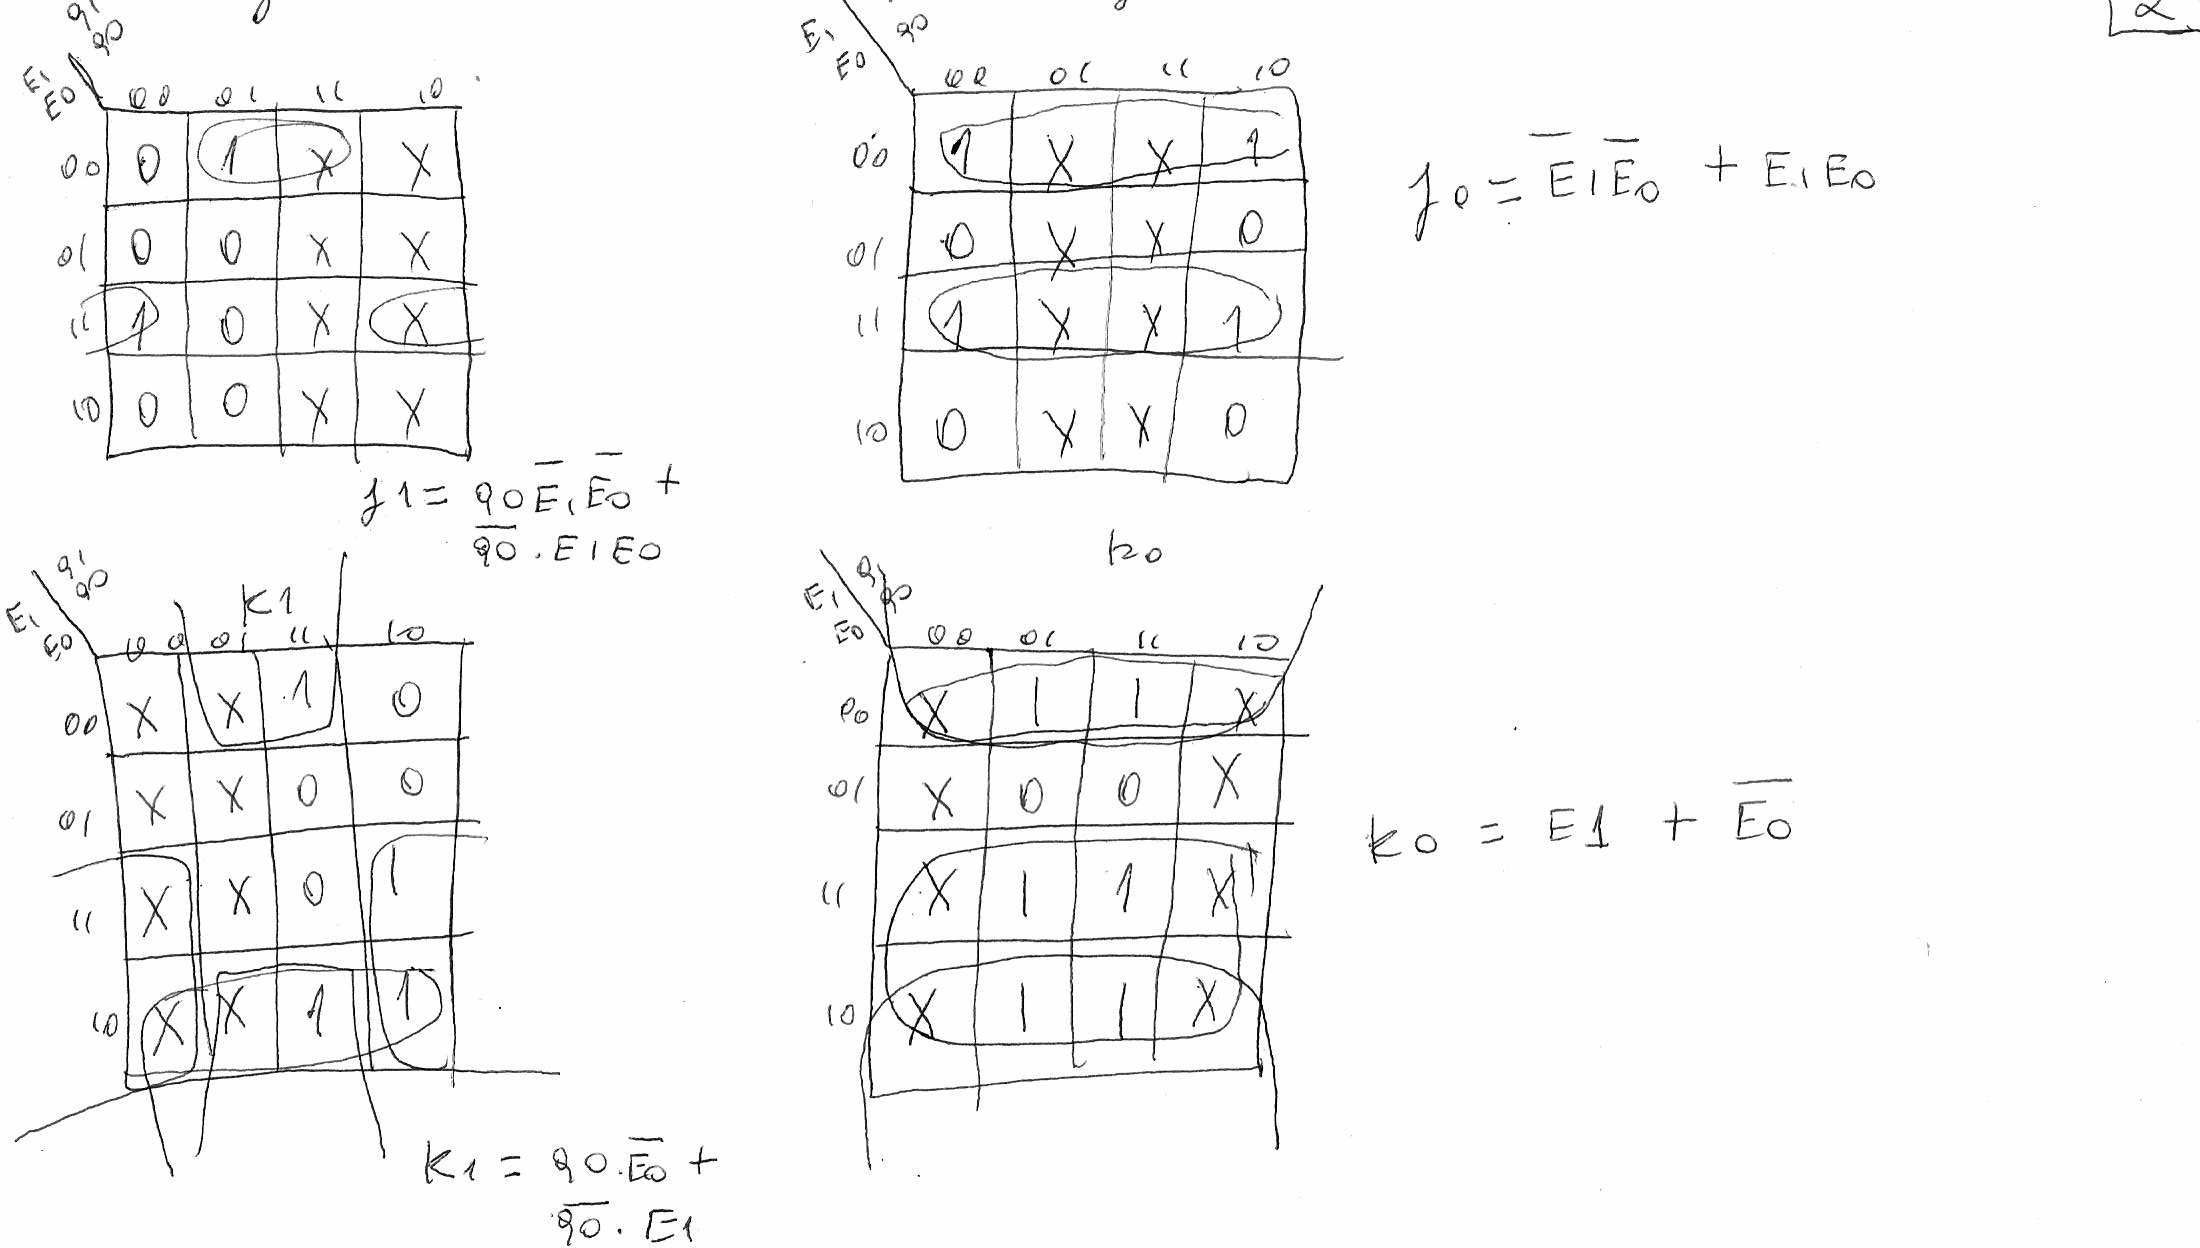 q1
q0
E1
E0
00 01 11 10
00 0 1 X X
01 0 0 X X
11 1 0 X X
10 0 0 X X
J1 = q0 E̅1 E̅0 +
q̅0̅ . E1 E0
q0
E1
E0
00 01 11 10
00 1 X X 1
01 0 X X 0
11 1 X X 1
10 0 X X 0
J0 = E̅1 E̅0 + E1 E0
α
q1
q0
K1
E1
E0
00 01 11 10
00 X X 1 0
01 X X 0 0
11 X X 0 1
10 X X 1 1
K1 = q0 . E̅0 +
q̅0̅ . E1
K0
q1
q0
E1
E0
00 01 11 10
00 X 1 1 X
01 X 0 0 X
11 X 1 1 X
10 X 1 1 X
K0 = E1 + E̅0